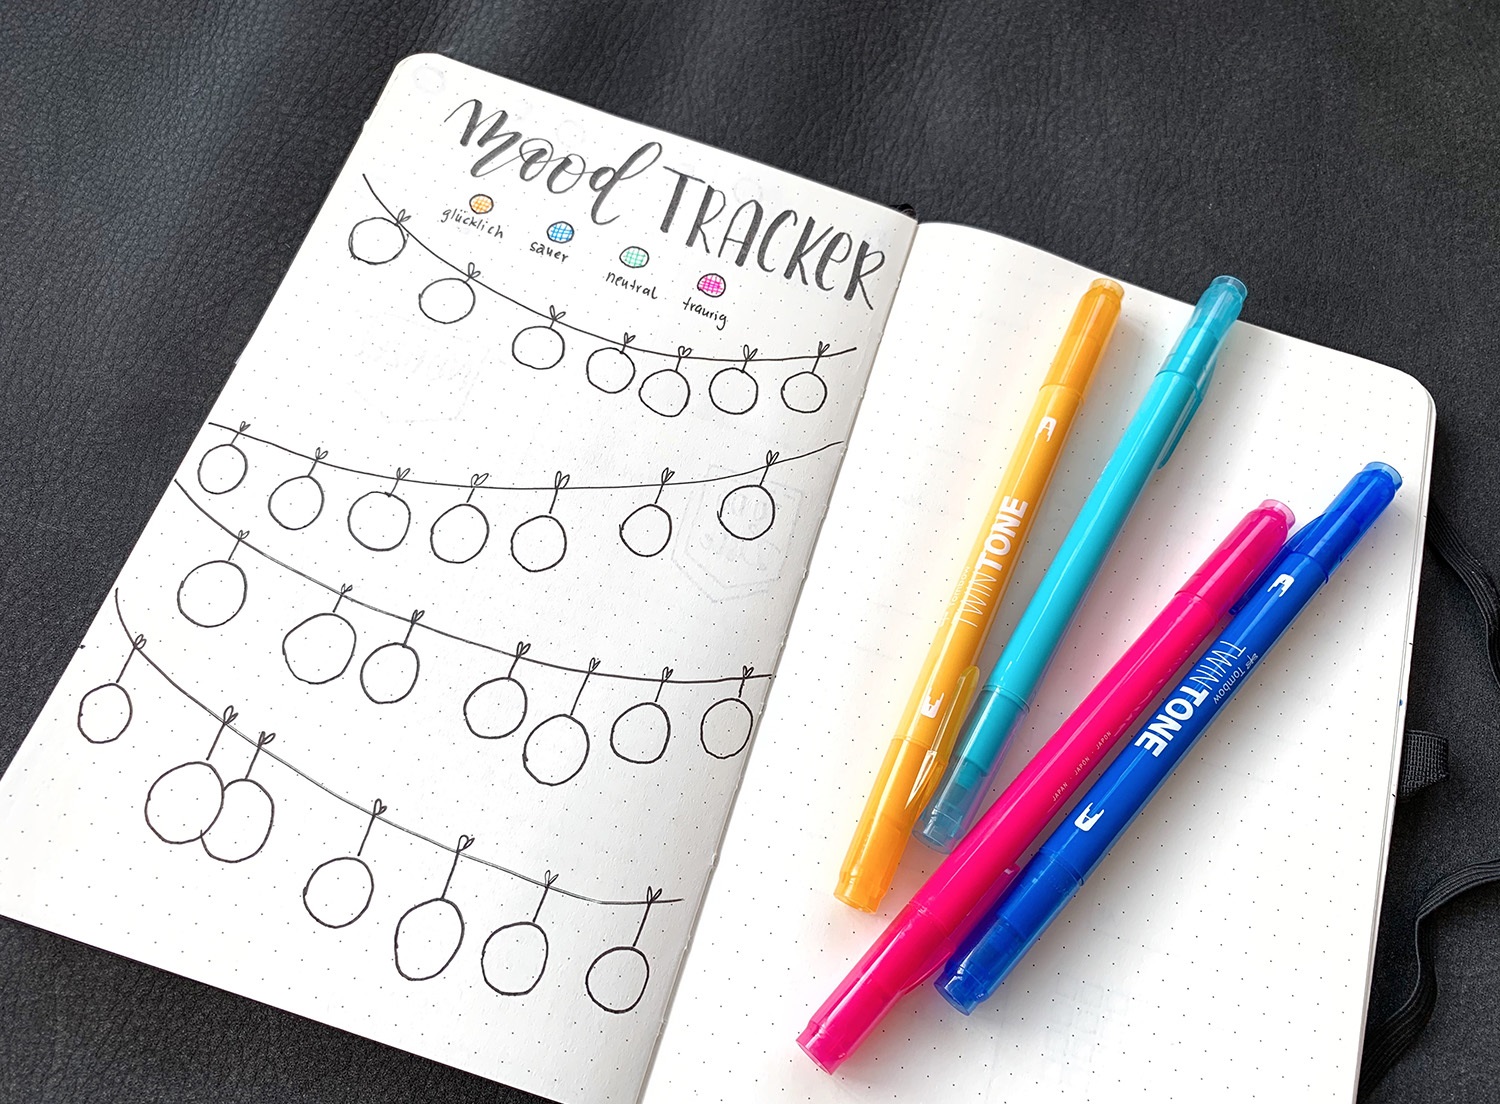 mood TRACKER
glücklich
sauer
neutral
traurig
TWINTONE
JAPAN · JAPÓN · JAPON
Tombow
TWINTONE